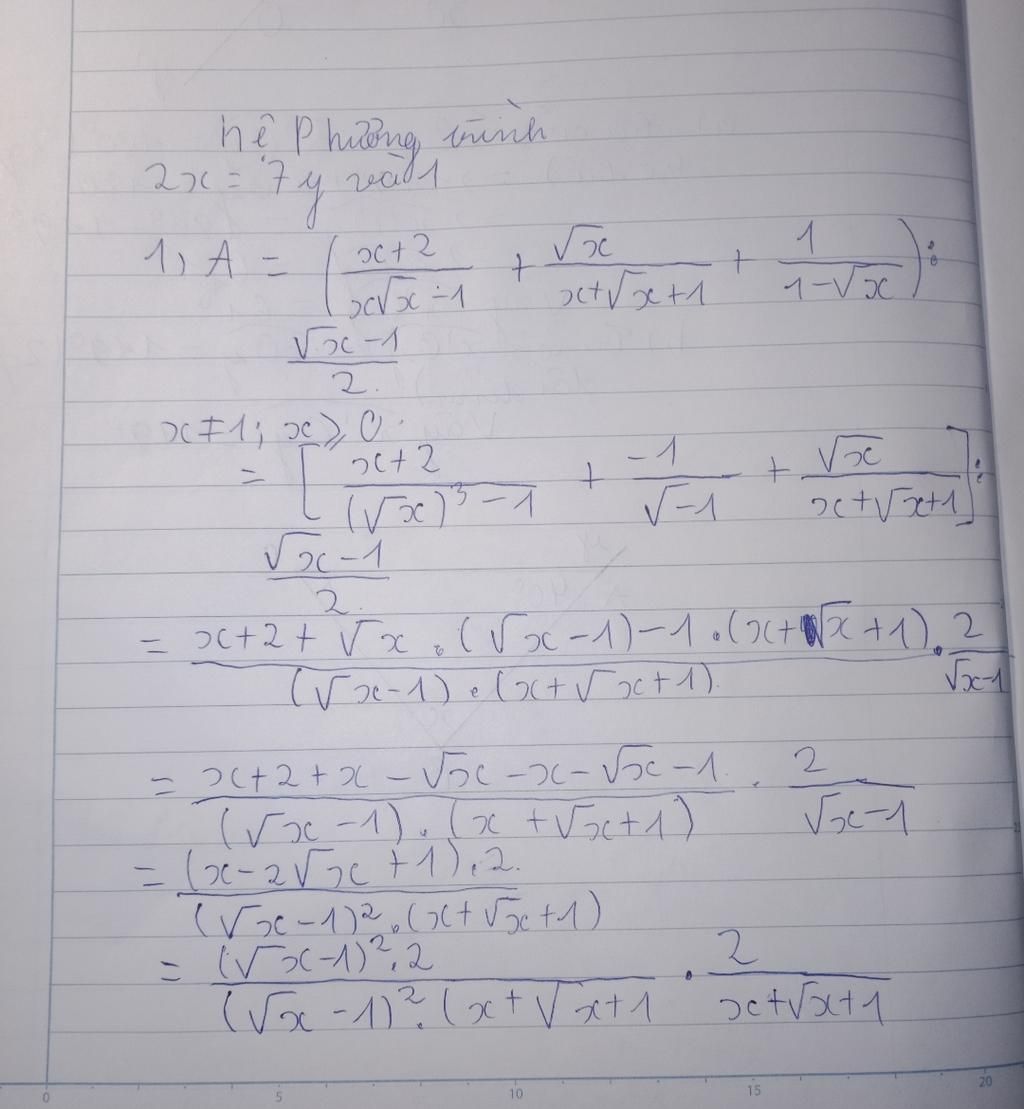 hệ Phương trình
2x = 7y và 1
1, A = (x+2/x√x-1 + √x/x+√x+1 + 1/1-√x) :
√x-1/2.
x≠1; x⩾0.
= [x+2/(√x)³-1 + -1/√-1 + √x/x+√x+1] :
√x-1/2.
= x+2+√x.(√x-1)-1.(x+√x+1)/(√x-1).(x+√x+1). . 2/√x-1
= x+2+x-√x-x-√x-1/(√x-1).(x+√x+1) . 2/√x-1
= (x-2√x+1).2./(√x-1)².(x+√x+1)
= (√x-1)².2/(√x-1)².(x+√x+1 . 2/x+√x+1
0 5 10 15 20